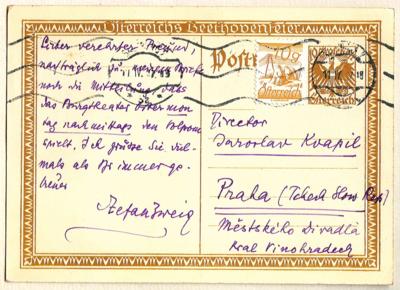 Österreichs Beethovenfeier
Lieber verehrter Freund,
nachträglich zu meinem Briefe
noch die Mitteilung, dass
das Burgtheater Ostermon
tag nachmittags den Volpone
spielt. Ich grüsse Sie viel-
mals als Ihr immer ge-
treuer
Stefan Zweig
Postk
10 g
Österreich
Österreich
Director
Jaroslav Kvapil
Praha (Tschechoslow Rep)
Městského Divadla
Kral Vinohradech